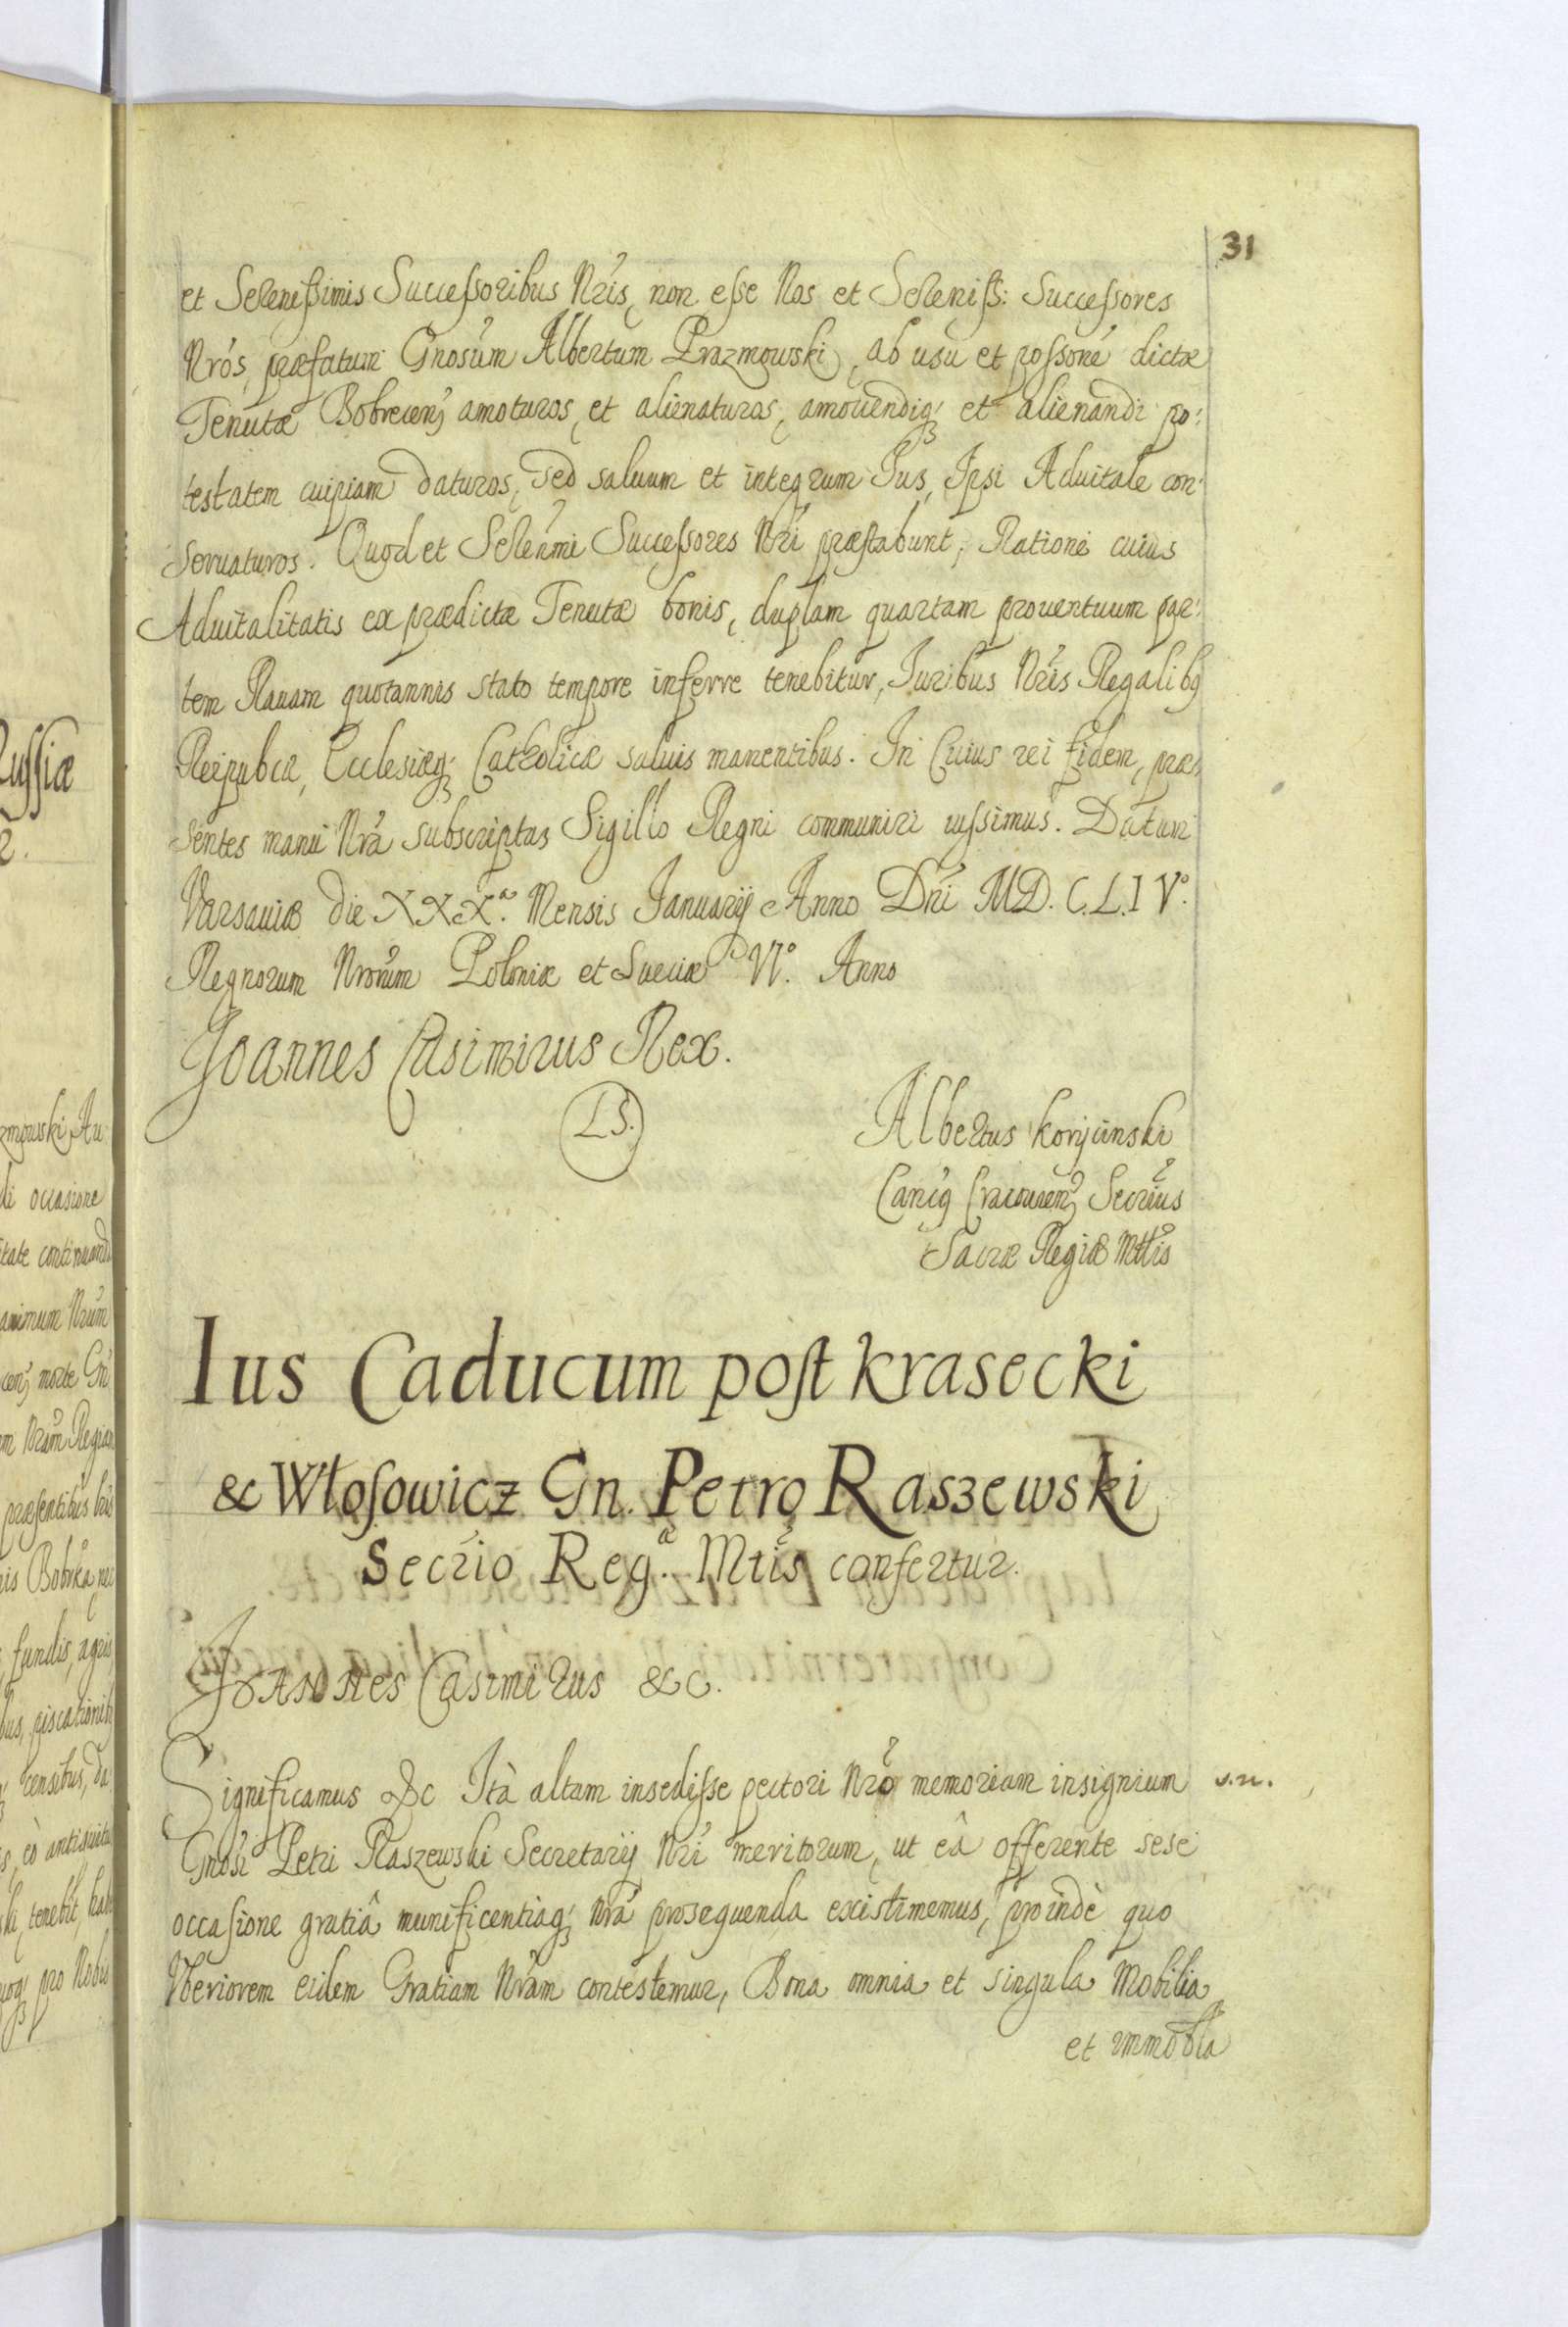 31
et Serenissimis Successoribus Nr̃is, non esse Nos et Sereniss: Successores
Nrõs, præfatum Gnosum Albertum Prazmowski, ab usu et possoné dictæ
Tenutæ Bobrecen̄ amoturos, et alienaturos, amouendiq; et alienandi po:
testatem cuipiam daturos, sed saluum et integrum Ius, Ipsi Aduitale con:
seruaturos. Quod et Serenm̃i Successores Nr̃i præstabunt, Ratione cuius
Aduitalitatis ex prædictæ Tenutæ bonis, duplam quartam prouentuum par:
tem Rauam quotannis stato tempore inferre tenebitur, Iuribus Nr̃is Regalibq
Reipubcæ, Ecclesiæq; Catholicæ saluis manentibus. In Cuius rei fidem, præ:
sentes manu Nrã subscriptas Sigillo Regni communiri iussimus. Datum
Varsauiæ die XXXa. Mensis Januarij Anno Dñi MD.C.L.IVº.
Regnorum Nrõrum Poloniæ et Sueciæ VIº. Anno
Joannes Casimirus Rex.
L.S.
Albertus Koryciński
Canicq Cracouien̄ Secriũs
Sacræ Regiæ Mttis
Ius Caducum post Krasecki
& Włosowicz Gn. Petro Raszewski
Secrĩo Reg.æ Mtis̃ confertur.
Joannes Casimirus &c.
Significamus &c Ità altam insedisse pectori Nrõ memoriam insignium
s.n.
Gnosi Petri Raszewski Secretarij Nr̃i meritorum, ut eâ offerente sese
occasione gratiâ munificentiaq; nrã prosequenda existimemus, proindè quo
Vberiorem eidem Gratiam Nrãm contestemur, Bona omnia et singula Mobilia
et immobla